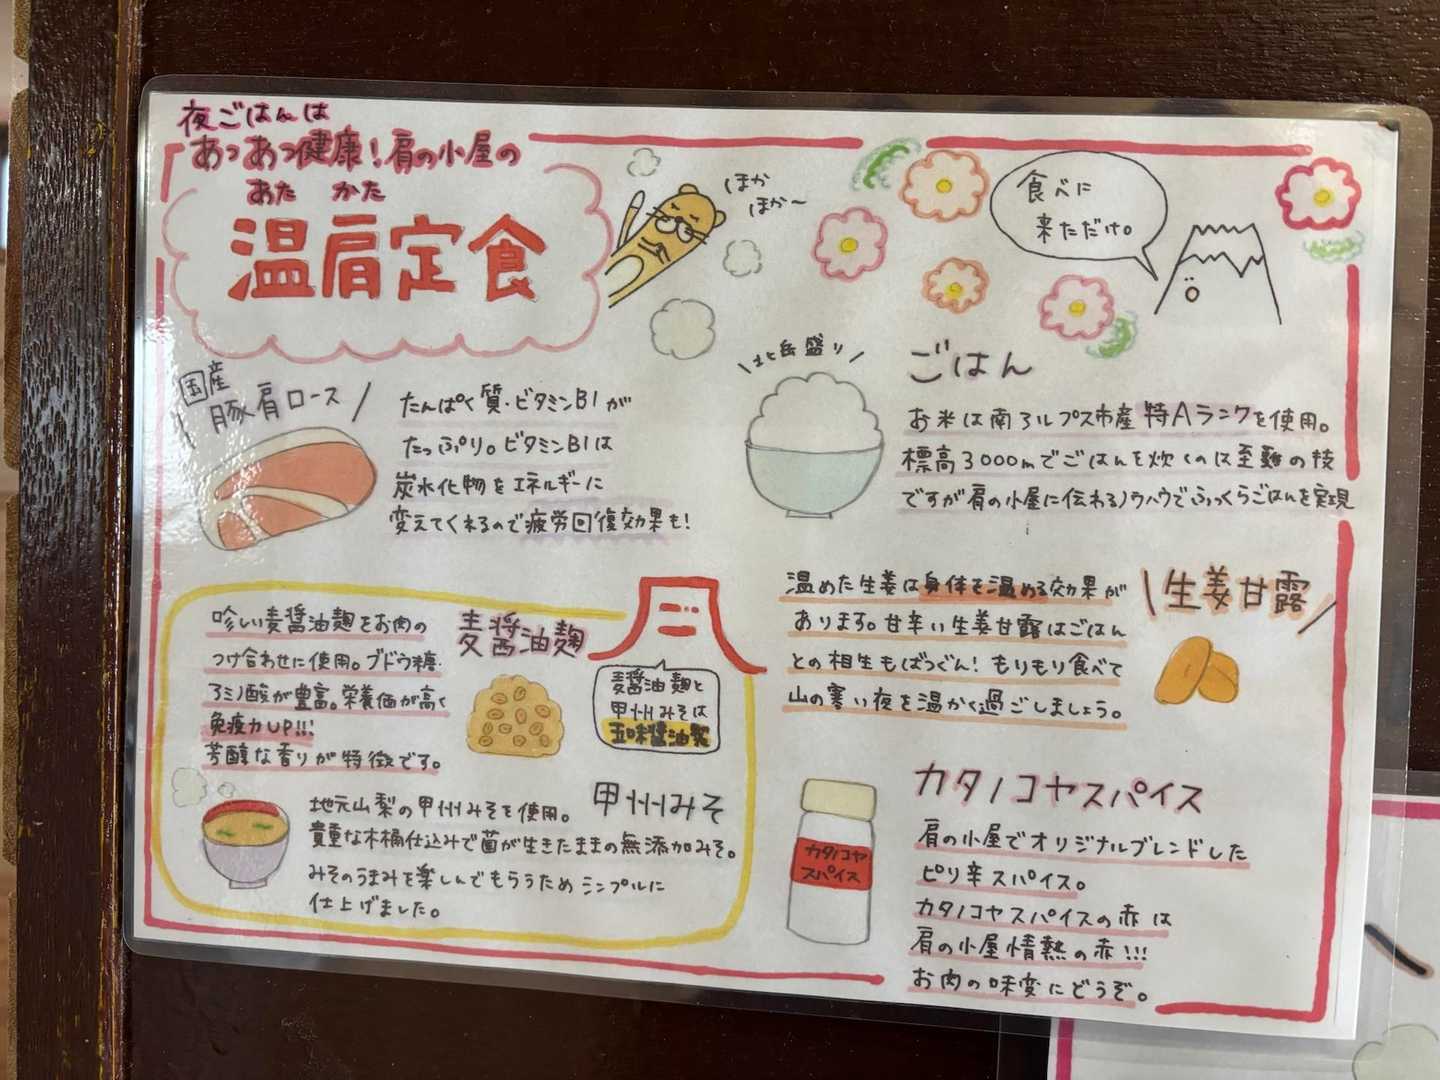 夜ごはんは
あつあつ健康!肩の小屋の
あた かた
温肩定食
ほか
ほか〜
食べに
来ただけ。
国産
豚肩ロース
たんぱく質・ビタミンB1が
たっぷり。ビタミンB1は
炭水化物をエネルギーに
変えてくれるので疲労回復効果も!
北岳盛り
ごはん
お米は南アルプス市産特Aランクを使用。
標高3000mでごはんを炊くのは至難の技
ですが肩の小屋に伝わるノウハウでふっくらごはんを実現
麦醤油麹
珍しい麦醤油麹をお肉の
つけ合わせに使用。ブドウ糖・
アミノ酸が豊富。栄養価が高く
免疫力UP!!!
芳醇な香りが特徴です。
麦醤油麹と
甲州みそは
五味醤油製
甲州みそ
地元山梨の甲州みそを使用。
貴重な木桶仕込みで菌が生きたままの無添加みそ。
みそのうまみを楽しんでもらうためシンプルに
仕上げました。
生姜甘露
温めた生姜は身体を温める効果が
あります。甘辛い生姜甘露はごはん
との相生もばつぐん!もりもり食べて
山の寒い夜を温かく過ごしましょう。
カタノコヤスパイス
カタノコヤ
スパイス
肩の小屋でオリジナルブレンドした
ピリ辛スパイス。
カタノコヤスパイスの赤は
肩の小屋情熱の赤!!!
お肉の味変にどうぞ。